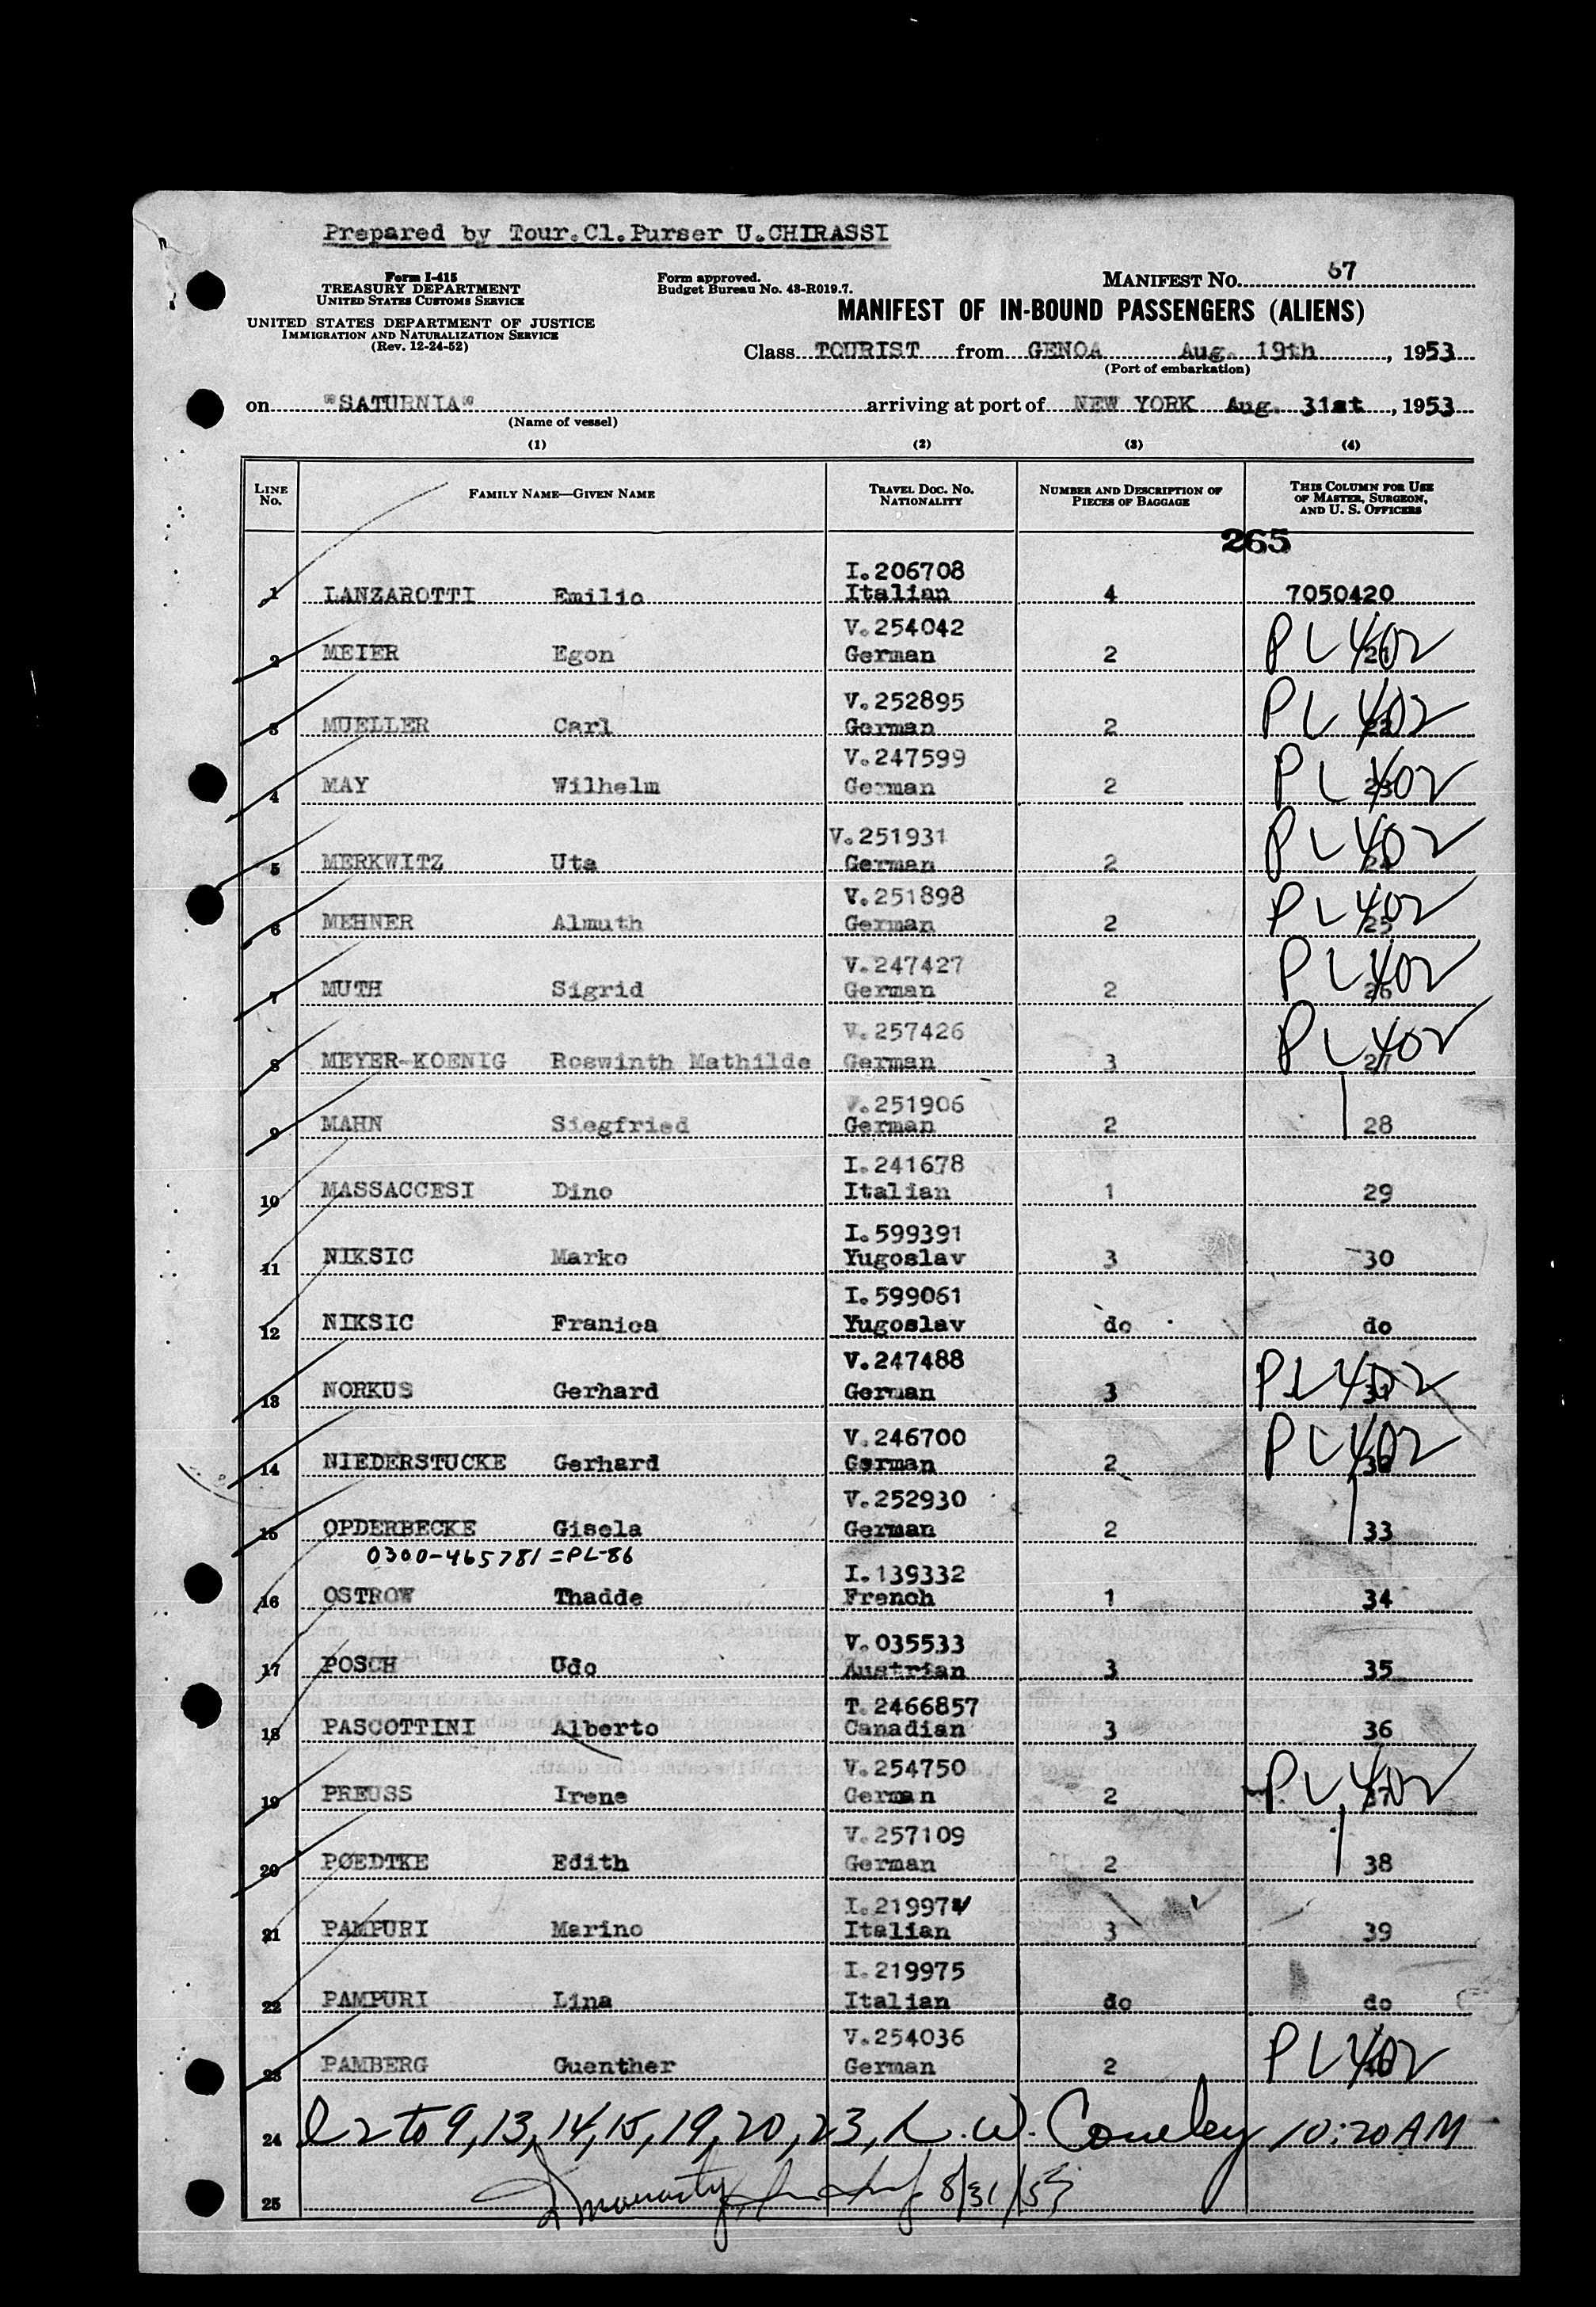 Prepared by Tour.Cl.Purser U.CHIRASSI
Form I-415
TREASURY DEPARTMENT
UNITED STATES CUSTOMS SERVICE
UNITED STATES DEPARTMENT OF JUSTICE
IMMIGRATION AND NATURALIZATION SERVICE
(Rev. 12-24-52)
Form approved.
Budget Bureau No. 43-R019.7.
MANIFEST No. 67
MANIFEST OF IN-BOUND PASSENGERS (ALIENS)
Class TOURIST from GENOA Aug. 19th, 1953
(Port of embarkation)
on "SATURNIA" arriving at port of NEW YORK Aug. 31st, 1953
(Name of vessel)
(1) (2) (3) (4)
LINE No. FAMILY NAME—GIVEN NAME TRAVEL DOC. NO. NATIONALITY NUMBER AND DESCRIPTION OF PIECES OF BAGGAGE THIS COLUMN FOR USE OF MASTER, SURGEON, AND U. S. OFFICERS
265
I.206708
1 LANZAROTTI Emilio Italian 4 7050420
V.254042
2 MEIER Egon German 2 21 PL 402
V.252895
3 MUELLER Carl German 2 22 PL 402
V.247599
4 MAY Wilhelm German 2 23 PL 402
V.251931
5 MERKWITZ Uta German 2 24 PL 402
V.251898
6 MEHNER Almuth German 2 25 PL 402
V.247427
7 MUTH Sigrid German 2 26 PL 402
V.257426
8 MEYER-KOENIG Roswinth Mathilde German 3 27 PL 402
V.251906
9 MAHN Siegfried German 2 28
I.241678
10 MASSACCESI Dino Italian 1 29
I.599391
11 NIKSIC Marko Yugoslav 3 30
I.599061
12 NIKSIC Franica Yugoslav do do
V.247488
13 NORKUS Gerhard German 3 31 PL 402
V.246700
14 NIEDERSTUCKE Gerhard German 2 32 PL 402
V.252930
15 OPDERBECKE Gisela German 2 33
0300-465781=PL-86
I.139332
16 OSTROW Thadde French 1 34
V.035533
17 POSCH Udo Austrian 3 35
T.2466857
18 PASCOTTINI Alberto Canadian 3 36
V.254750
19 PREUSS Irene German 2 37 PL 402
V.257109
20 POEDTKE Edith German 2 38
I.219974
21 PAMPURI Marino Italian 3 39
I.219975
22 PAMPURI Lina Italian do do
V.254036
23 PAMBERG Guenther German 2 40 PL 402
24 l 2 to 9, 13, 14, 15, 19, 20, 23, L. W. 10:20 AM
25 8/31/53